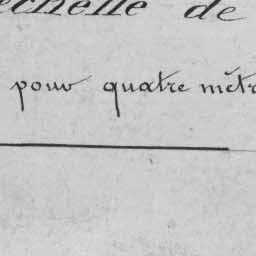 echelle de
pour quatre mètr